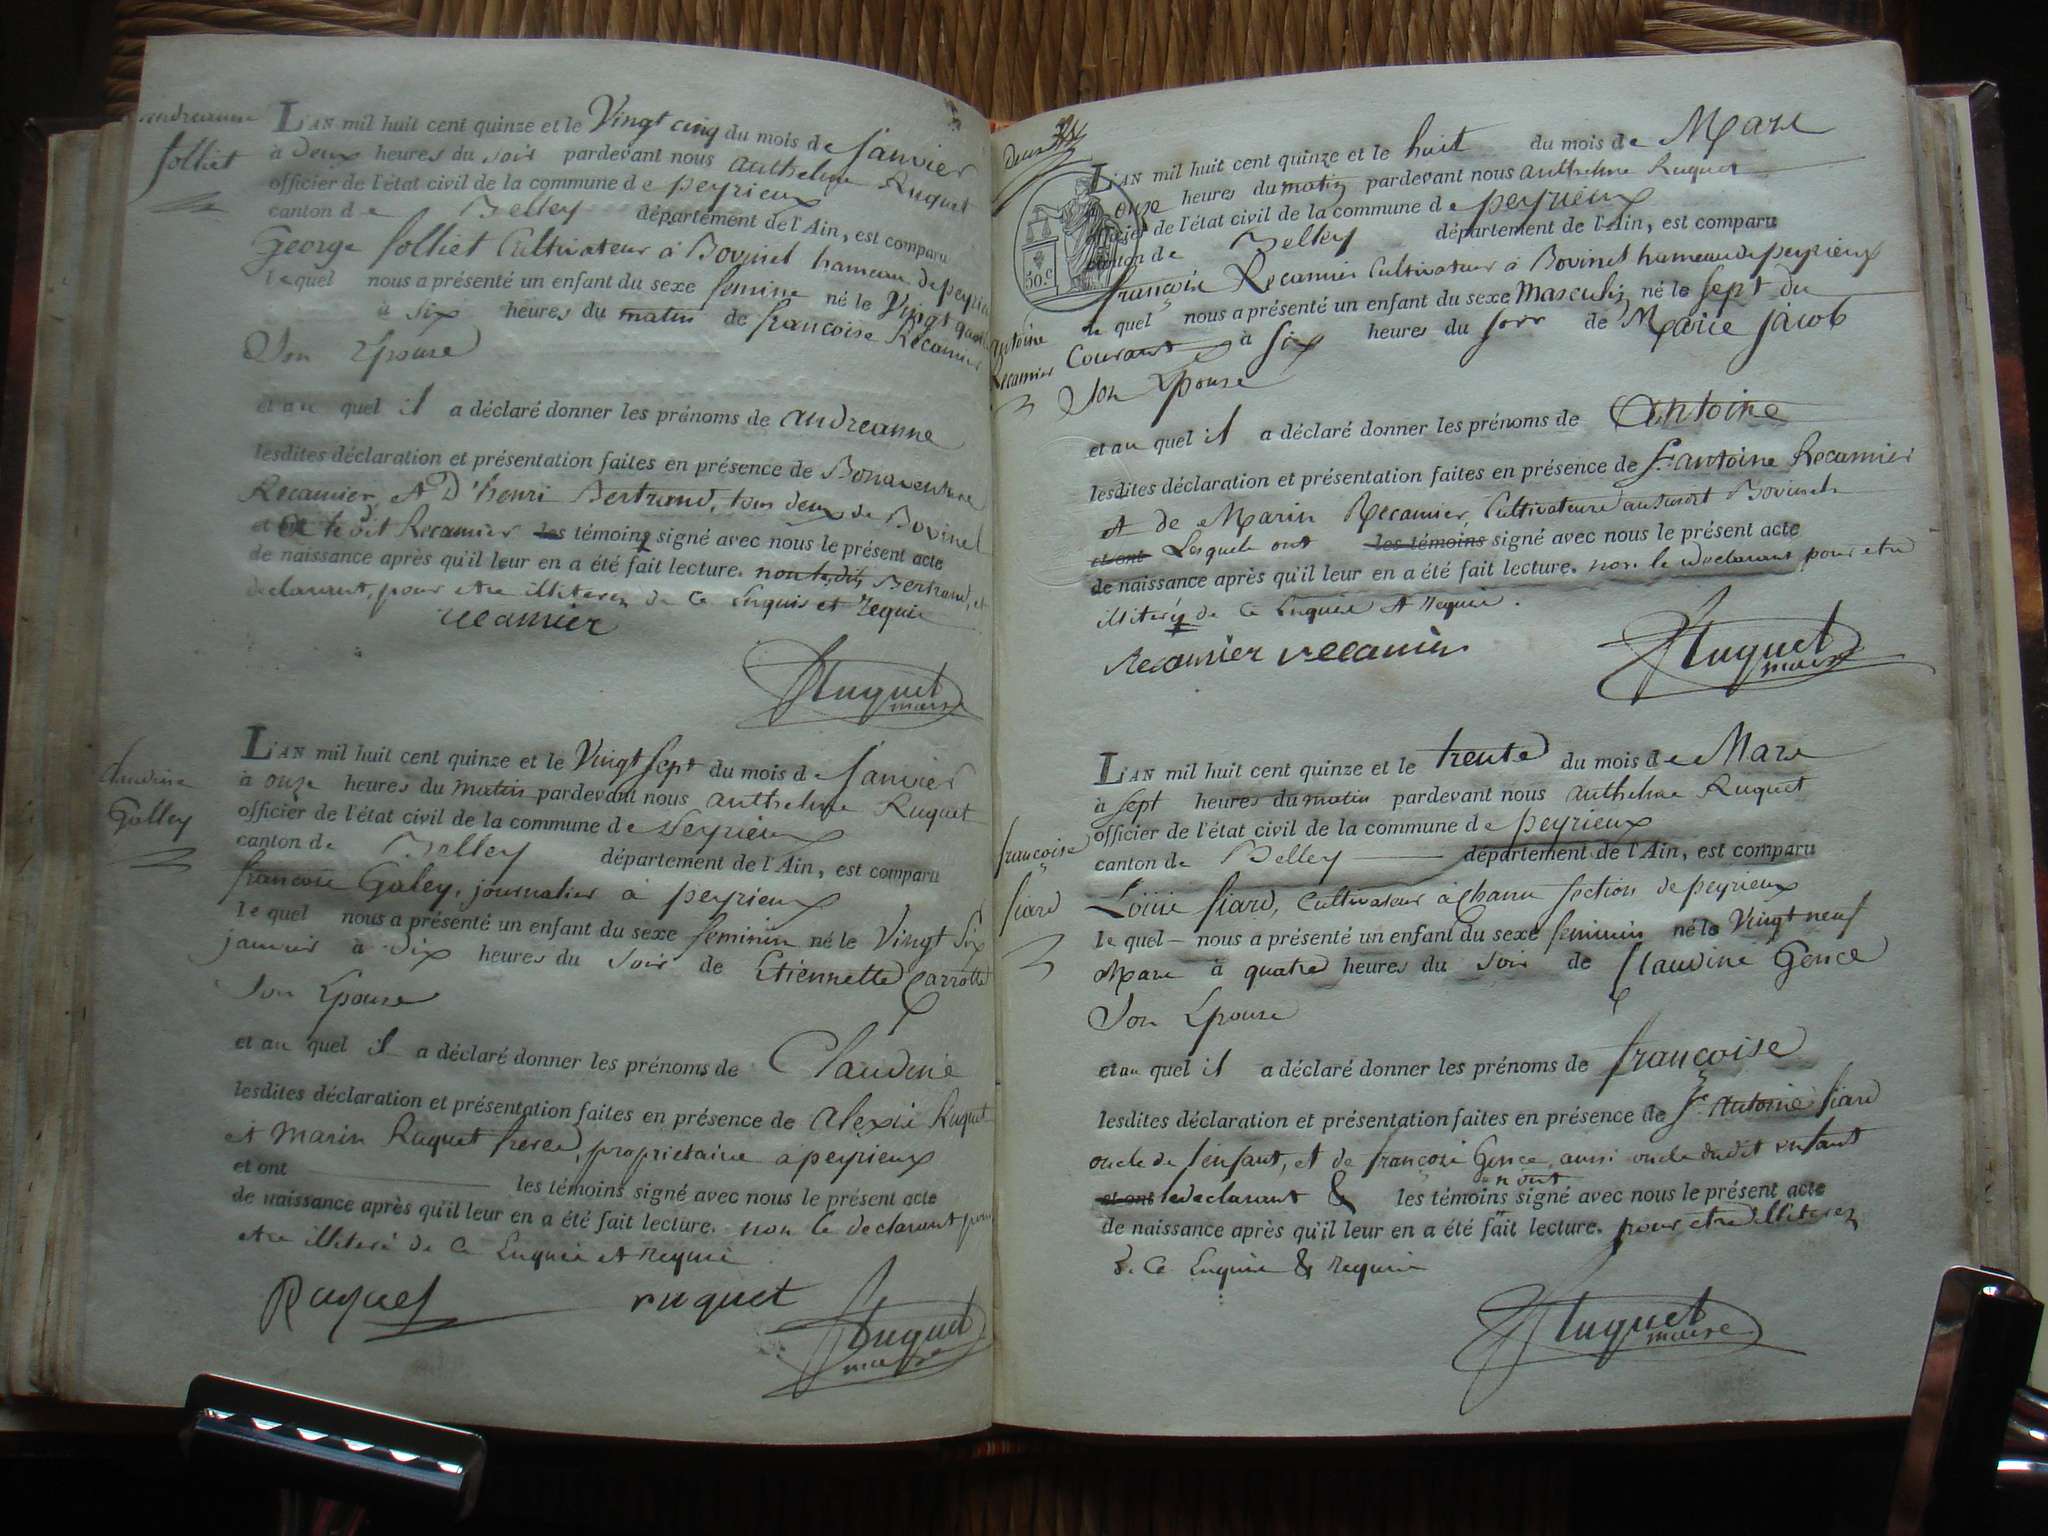 andréanne
Jolliet
L'AN mil huit cent quinze et le Vingt cinq du mois de Janvier
à deux heures du soir pardevant nous anthelme Ruquet
officier de l'état civil de la commune de peyrieux
canton de Belley département de l'Ain, est comparu
George Jolliet Cultivateur à Bovinel hameau de peyrieux
lequel nous a présenté un enfant du sexe feminin né le Vingt quatre
à six heures du matin de francoise Récamier
Son Epouse
et au quel il a déclaré donner les prénoms de andreanne
lesdites déclaration et présentation faites en présence de Bonaventure
Recamier, et D'henri Bertrand, tous deux de Bovinel
et ledit Recamier les témoins signé avec nous le présent acte
de naissance après qu'il leur en a été fait lecture. non ledit Bertrand, et
declarant, pour etre illiteres de ce Enquis et Requis
recamier
Ruquet
maire
Claudine
Galley
L'AN mil huit cent quinze et le Vingt Sept du mois de Janvier
à onze heures du matin pardevant nous anthelme Ruquet
officier de l'état civil de la commune de peyrieux
canton de Belley département de l'Ain, est comparu
françois Galey, journalier à peyrieux
lequel nous a présenté un enfant du sexe feminin né le Vingt Six
janvier à dix heures du soir de Etiennette Carrotte
Son Epouse
et au quel il a déclaré donner les prénoms de Claudine
lesdites déclaration et présentation faites en présence de alexis Ruquet
et Marin Ruquet freres, proprietaire à peyrieux
et ont les témoins signé avec nous le présent acte
de naissance après qu'il leur en a été fait lecture. non le declarant pour
etre illiteré de ce Enquis et requis
Ruquet ruquet
Ruquet
maire
50 c.
L'AN mil huit cent quinze et le huit du mois de Mars
à onze heures du matin pardevant nous anthelme Ruquet
officier de l'état civil de la commune de peyrieux
canton de Belley département de l'Ain, est comparu
françois Recamier Cultivateur à Bovinel hameau de peyrieux
le quel nous a présenté un enfant du sexe Masculin né le Sept du
Courant à Six heures du soir de Marie jacob
Son Epouse
antoine
Recamier
et au quel il a déclaré donner les prénoms de antoine
lesdites déclaration et présentation faites en présence de Sr. antoine Recamier
et de Marin Recamier, Cultivateurs au susdit Bovinel
et ont Lesquels ont les témoins signé avec nous le présent acte
de naissance après qu'il leur en a été fait lecture. non le declarant pour etre
illiteré de ce Enquis et requis.
Recamier recamier
Ruquet
maire
françoise
fiard
L'AN mil huit cent quinze et le trente du mois de Mars
à sept heures du matin pardevant nous anthelme Ruquet
officier de l'état civil de la commune de peyrieux
canton de Belley département de l'Ain, est comparu
Louis fiard, Cultivateur à Chanu Section de peyrieux
le quel nous a présenté un enfant du sexe feminin né le Vingt neuf
Mars à quatre heures du soir de Claudine Gence
Son Epouse
et au quel il a déclaré donner les prénoms de françoise
lesdites déclaration et présentation faites en présence de Sr. Antoine fiard
oncle de l'enfant, et de françois Gence aussi oncle dudit enfant
n'ont
et ont le declarant & les témoins signé avec nous le présent acte
de naissance après qu'il leur en a été fait lecture. pour etre illiteres
de Ce Enquis & requis
Ruquet
maire